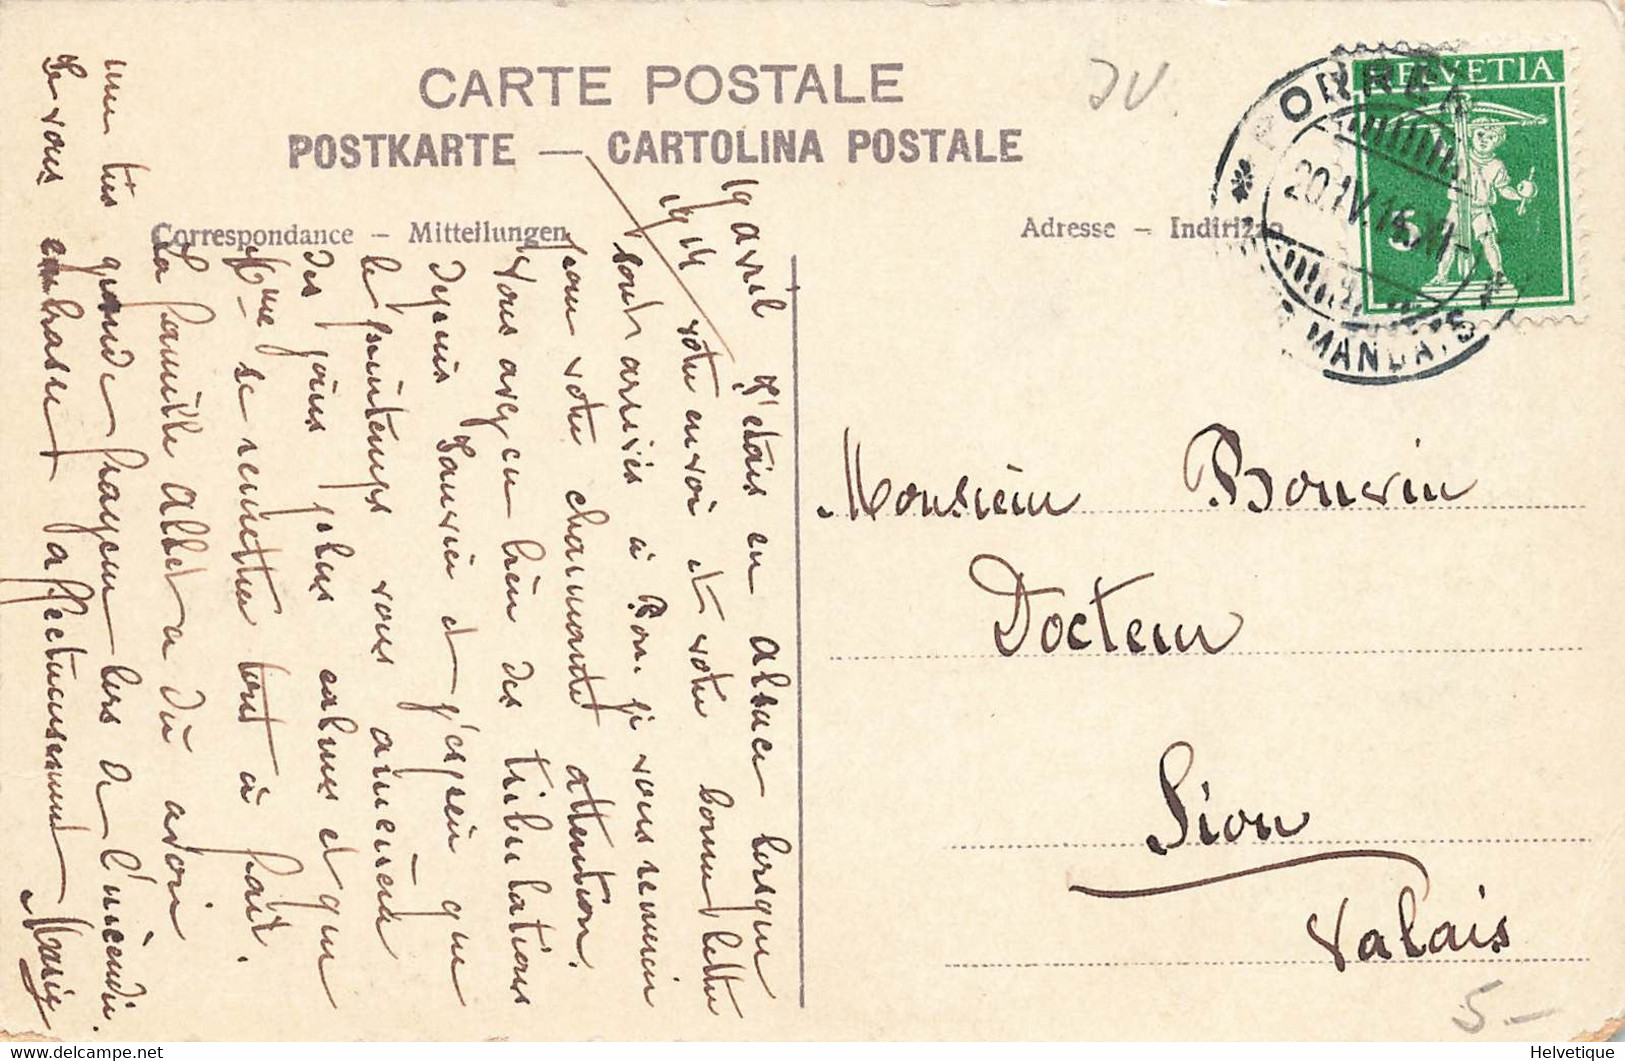 CARTE POSTALE
POSTKARTE — CARTOLINA POSTALE
Correspondance – Mitteilungen
Adresse – Indirizzo
JV.
HELVETIA
5
PORREN
20.IV.14.XI-
MANDATS
19 avril J'étais en Alsace lorsque
1914 votre envoi et votre bonne lettre
sont arrivés à Porr. je vous remercie
pour votre charmante attention.
Vous avez eu bien des tribulations
depuis Janvier et j'espère que
le printemps vous amènera
des jours plus calmes et que
se remettra tout à fait.
La famille Albert a dû avoir
une très grande frayeur lors de l'incendie.
Je vous embrasse affectueusement
Marie
Monsieur Bonvin
Docteur
Sion
Valais
5.-
Helvetique
www.delcampe.net